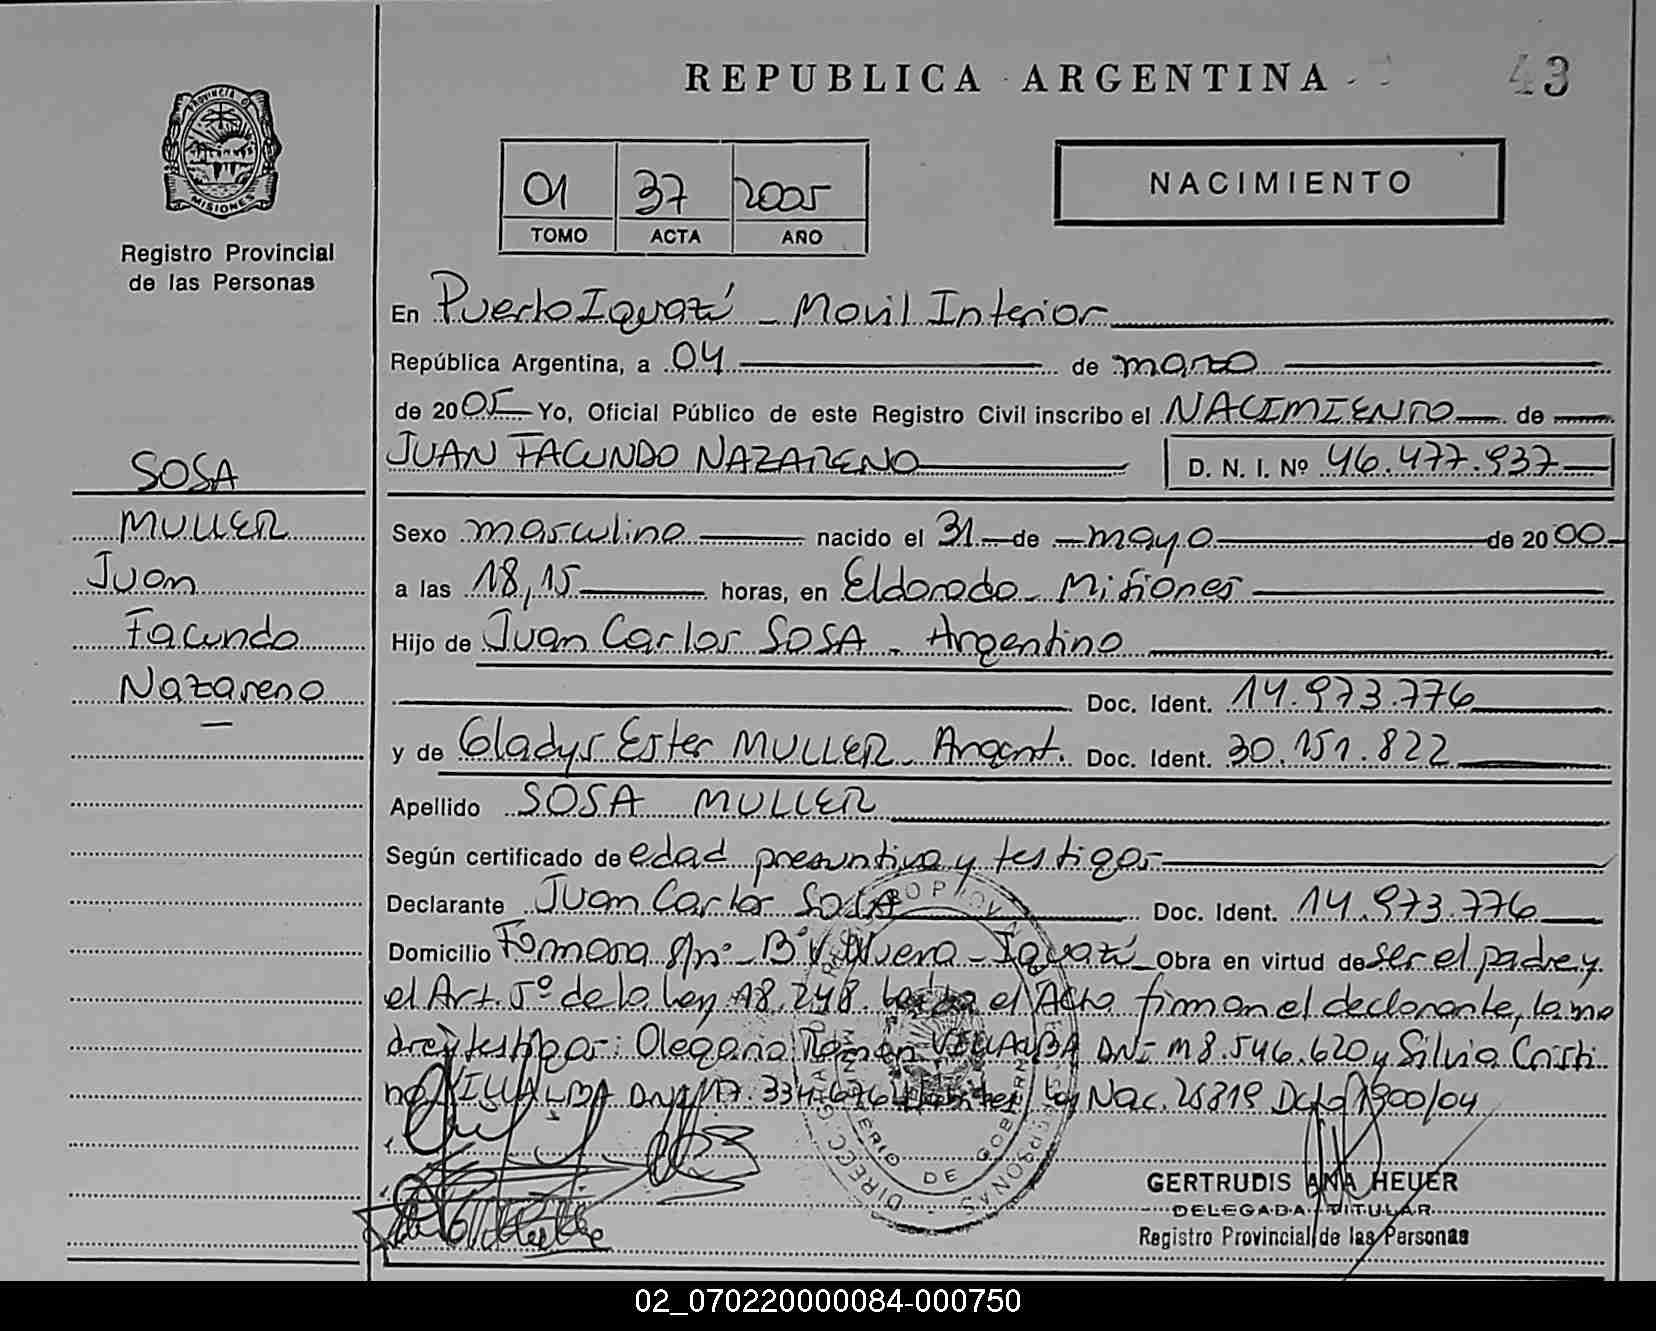 REPUBLICA ARGENTINA
43
PROVINCIA DE
MISIONES
Registro Provincial
de las Personas
01 37 2005
TOMO ACTA AÑO
NACIMIENTO
En Puerto Iguazú - Movil Interior
República Argentina, a 04 de marzo
de 2005 Yo, Oficial Público de este Registro Civil inscribo el NACIMIENTO de
JUAN FACUNDO NAZARENO D. N. I. Nº 46.477.937
SOSA
MULLER
Juan
Facundo
Nazareno
Sexo masculino nacido el 31 de mayo de 2000
a las 18,15 horas, en Eldorado - Misiones
Hijo de Juan Carlos SOSA - Argentino
Doc. Ident. 14.973.776
y de Gladys Ester MULLER - Argent. Doc. Ident. 30.151.822
Apellido SOSA MULLER
Según certificado de edad presuntiva y testigos
Declarante Juan Carlos Sosa Doc. Ident. 14.973.776
Domicilio s/nº - Bº V. Nueva - Iguazú Obra en virtud de ser el padre y
el Art. 5º de la Ley 18.248. el Acta firman el declarante, la ma
dre y testigos: Olegario Ramón VILLALBA DNI M8.546.620 y Silvia Cristi
na VILLALBA DNI 17.334.676 Ley Nac. 25819 Dcto 1900/04
GERTRUDIS ANA HEUER
DELEGADA TITULAR
Registro Provincial de las Personas
02_070220000084-000750